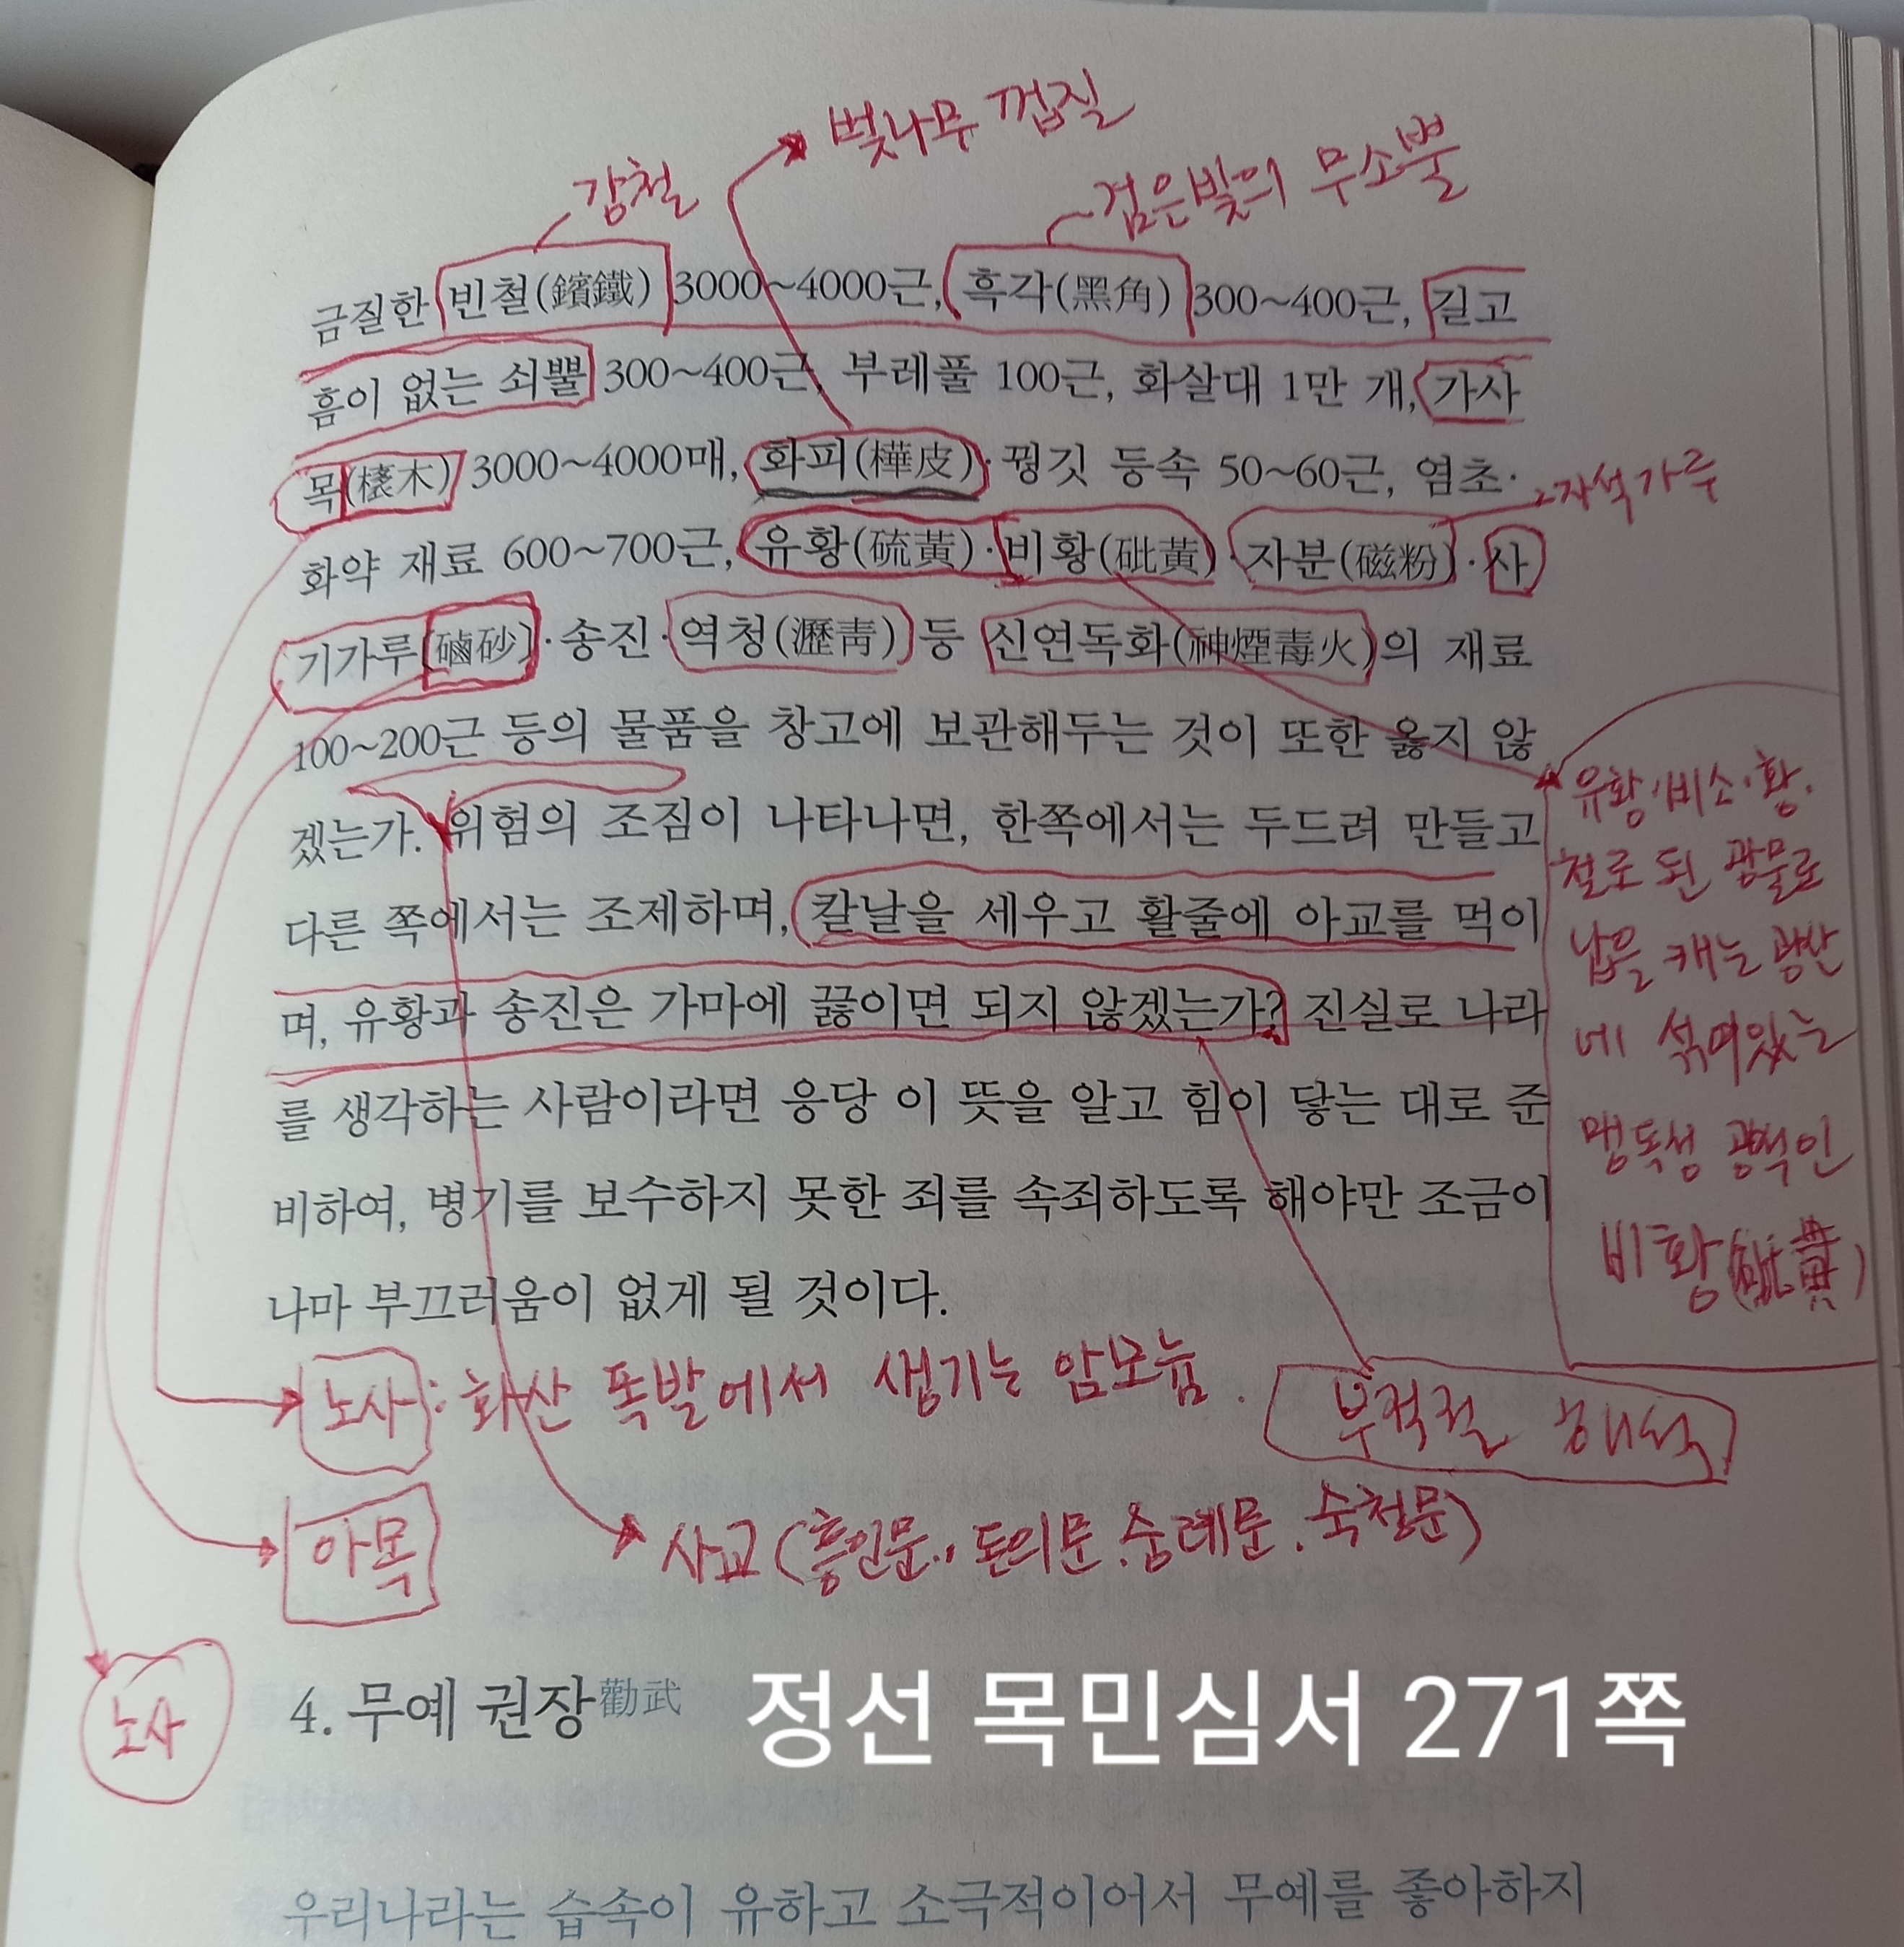 벚나무 껍질
강철
검은빛의 무소뿔
금질한 빈철(鑌鐵) 3000~4000근, 흑각(黑角) 300~400근, 길고
흠이 없는 쇠뿔 300~400근, 부레풀 100근, 화살대 1만 개, 가사
목(木) 3000~4000매, 화피(樺皮)·꿩깃 등속 50~60근, 염초·
자석가루
화약 재료 600~700근, 유황(硫黃)·비황(砒黃)·자분(磁粉)·사
기가루(磠砂)·송진·역청(瀝靑) 등 신연독화(神煙毒火)의 재료
100~200근 등의 물품을 창고에 보관해두는 것이 또한 옳지 않
겠는가. 위험의 조짐이 나타나면, 한쪽에서는 두드려 만들고
다른 쪽에서는 조제하며, 칼날을 세우고 활줄에 아교를 먹이
며, 유황과 송진은 가마에 끓이면 되지 않겠는가? 진실로 나라
를 생각하는 사람이라면 응당 이 뜻을 알고 힘이 닿는 대로 준
비하여, 병기를 보수하지 못한 죄를 속죄하도록 해야만 조금이
나마 부끄러움이 없게 될 것이다.
유황·비소·황·
철로 된 광물로
납을 캐는 광산
에 섞여있는
맹독성 광석인
비황(砒黃)
노사: 화산 폭발에서 생기는 암모늄.
부적절 해석
아목
사교(흥인문., 돈의문.숭례문.숙철문)
노사
4. 무예 권장 勸武
정선 목민심서 271쪽
우리나라는 습속이 유하고 소극적이어서 무예를 좋아하지